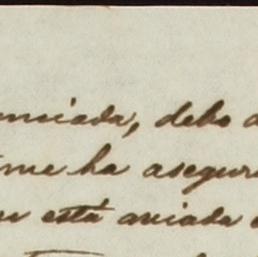 unciada, debo a
me ha asegura
está aviada